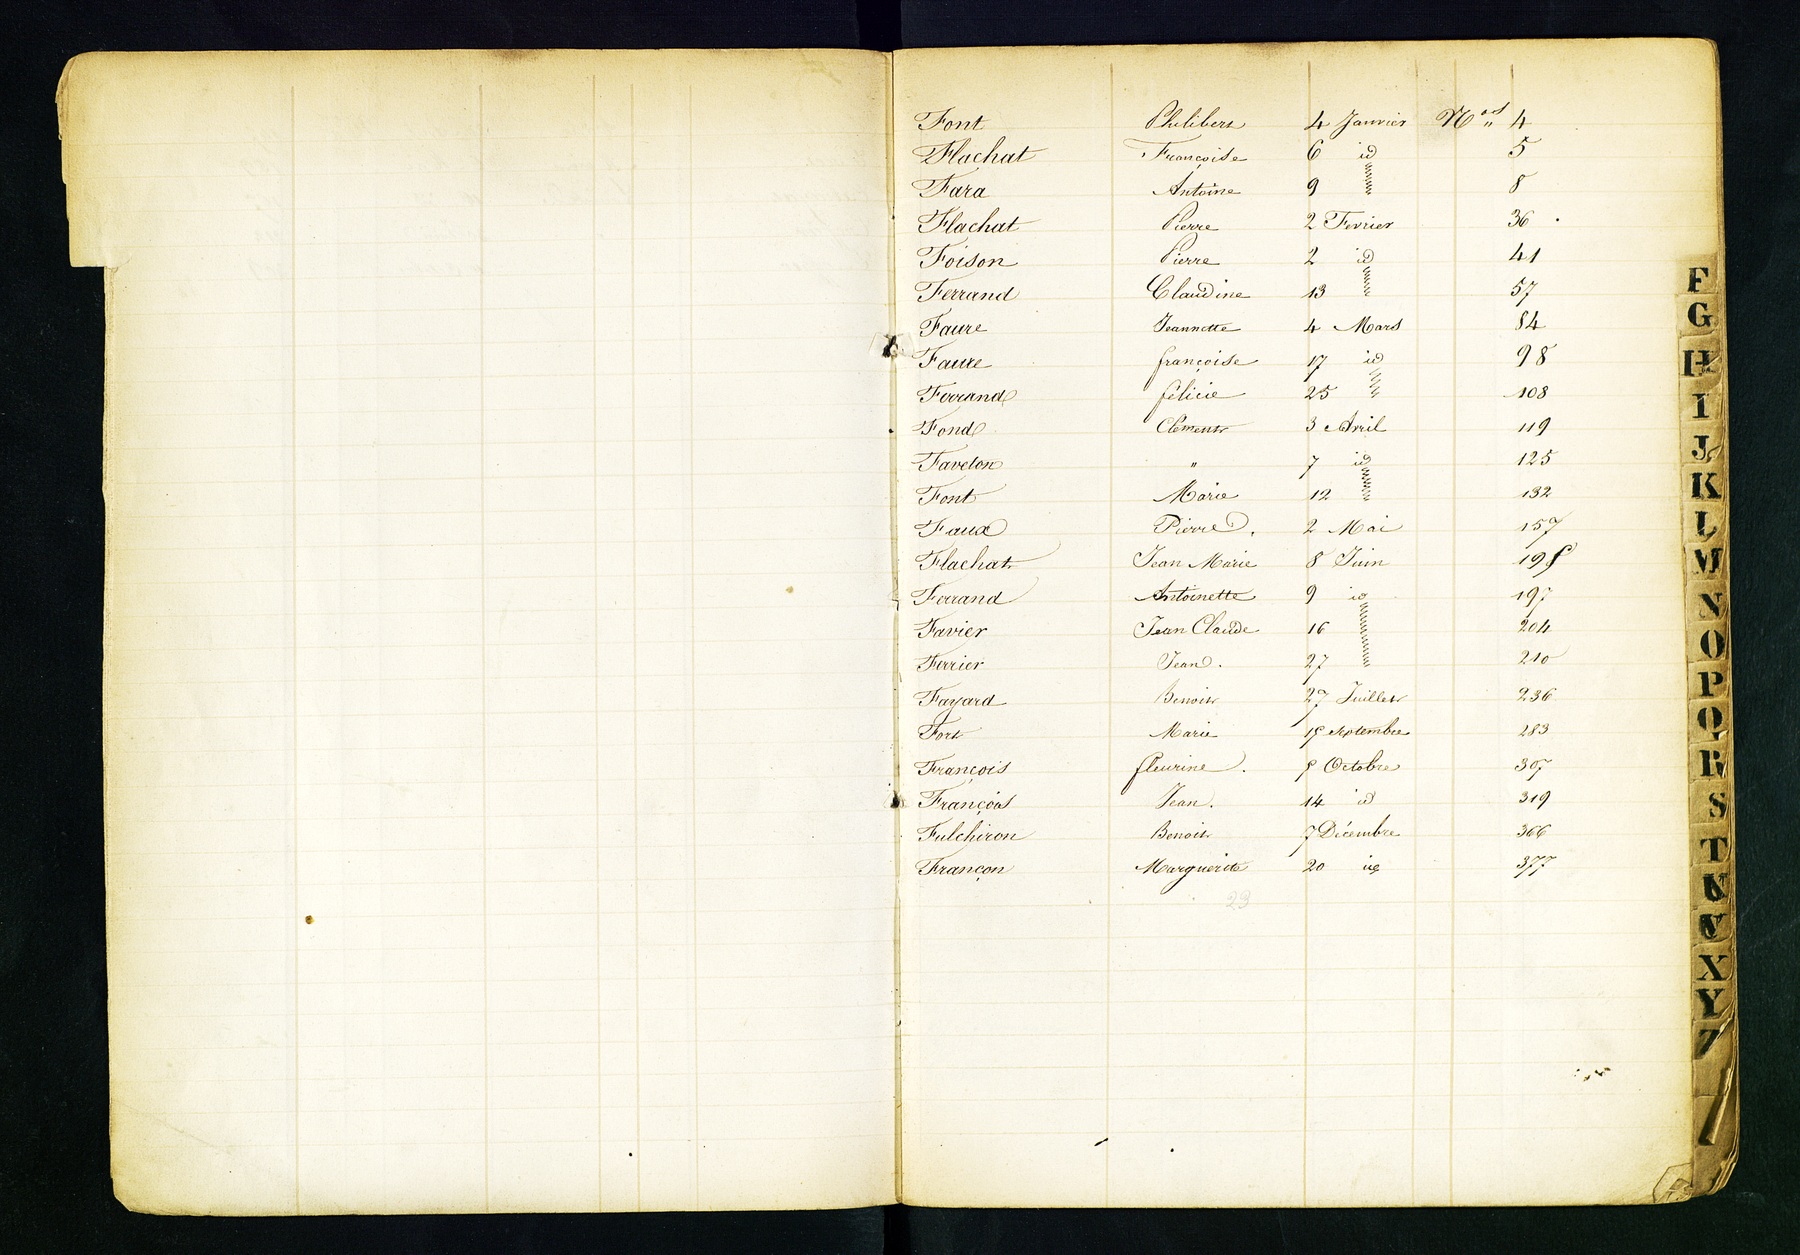 Font Philibert 4 Janvier Nos " 4
Flachat Françoise 6 id 5
Fara Antoine 9 " 8
Flachat Pierre 2 Fevrier 36
Foison Pierre 2 id 41
Ferrand Claudine 13 " 57
Faure Jeannette 4 Mars 84
Faure françoise 17 id 98
Ferrand félicie 25 " 108
Fond Clément 3 Avril 119
Favelon " 7 id 125
Font Marie 12 " 132
Faux Pierre. 2 Mai 157
Flachat Jean Marie 8 Juin 195
Ferrand Antoinette 9 id 197
Favier Jean Claude 16 " 204
Ferrier Jean. 27 " 210
Fayard Benoit 27 Juillet 236
Fort Marie 15 Septembre 283
François fleurine. 5 Octobre 307
François Jean. 14 id 319
Fulchiron Benoit 7 Décembre 366
Françon Marguerite 20 id 377
23
F
G
H
I
J
K
L
M
N
O
P
Q
R
S
T
U
V
X
Y
Z